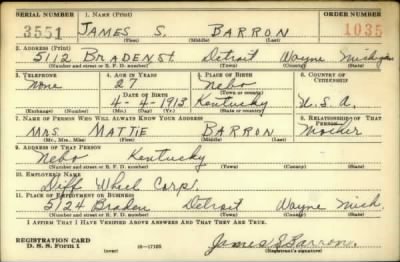 SERIAL NUMBER 1. NAME (Print) ORDER NUMBER
3551 JAMES S. BARRON 1035
(First) (Middle) (Last)
2. ADDRESS (Print)
5112 BRADEN St. Detroit Wayne Michigan
(Number and street or R. F. D. number) (Town) (County) (State)
3. TELEPHONE 4. AGE IN YEARS 5. PLACE OF BIRTH 6. COUNTRY OF CITIZENSHIP
None 27 Nebo
DATE OF BIRTH (Town or county)
4-4-1913 Kentucky U.S.A.
(Exchange) (Number) (Mo.) (Day) (Yr.) (State or country)
7. NAME OF PERSON WHO WILL ALWAYS KNOW YOUR ADDRESS 8. RELATIONSHIP OF THAT PERSON
MRS. MATTIE BARRON Mother
(Mr., Mrs., Miss) (First) (Middle) (Last)
9. ADDRESS OF THAT PERSON
Nebo Kentucky
(Number and street or R. F. D. number) (Town) (County) (State)
10. EMPLOYER'S NAME
Diff Wheel Corp.
11. PLACE OF EMPLOYMENT OR BUSINESS
5124 Braden Detroit Wayne Mich.
(Number and street or R. F. D. number) (Town) (County) (State)
I AFFIRM THAT I HAVE VERIFIED ABOVE ANSWERS AND THAT THEY ARE TRUE.
REGISTRATION CARD
D. S. S. FORM 1 James S Barron
(Registrant's signature)